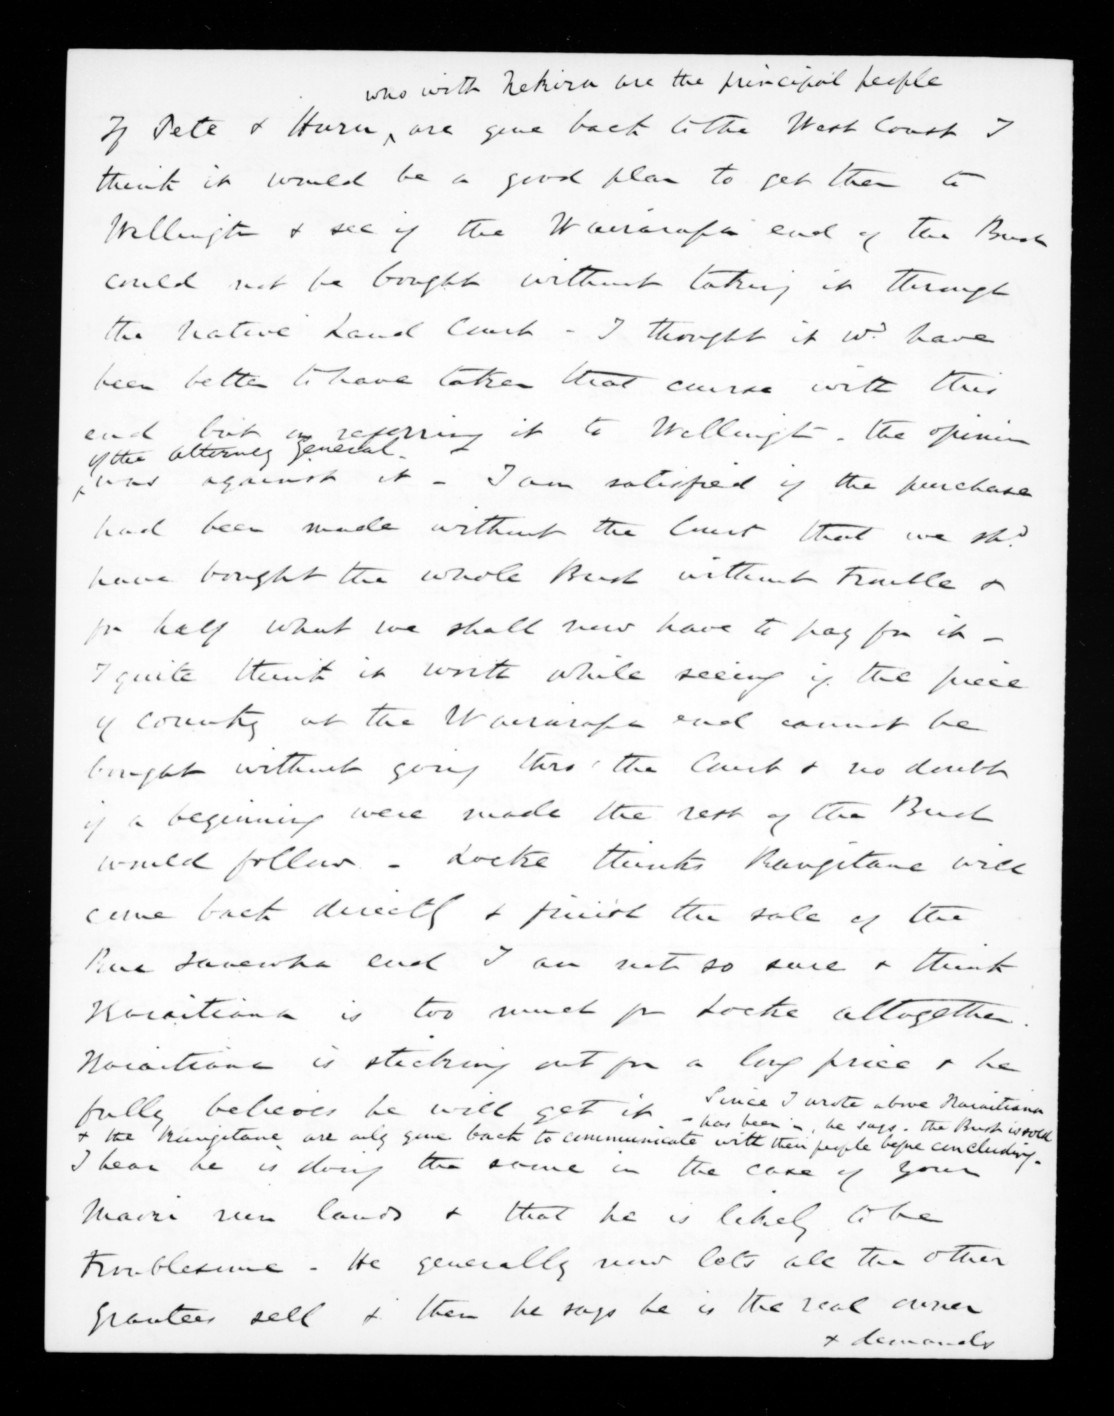 who with Nekira are the principal people
If Pete & Huru are gone back to the West Coast I
think it would be a good plan to get them to
Wellington & see if the Wairarapa end of the Bush
could not be bought without taking it through
the Native Land Court - I thought it wd. have
been better to have taken that course with this
end but on referring it to Wellington - the opinion
of the Attorney General -
was against it - I am satisfied if the purchase
had been made without the Court that we shd.
have bought the whole Bush without trouble &
for half what we shall now have to pay for it -
I quite think it worth while seeing if the piece
of country at the Wairarapa end cannot be
bought without going thro' the Court & no doubt
if a beginning were made the rest of the Bush
would follow - Locke thinks Rangitane will
come back directly & finish the sale of the
end I am not so sure & think
Karaitiana is too much for Locke altogether.
Karaitiana is sticking out for a long price & he
fully believes he will get it -
Since I wrote above Karaitiana
has been in, he says - the Bush is sold
& the Rangitane are only gone back to communicate with their people before concluding -
I hear he is doing the same in the case of your
Maori run lands & that he is likely to be
troublesome - He generally now lets all the other
Grantees sell & then he says he is the real owner
& demands